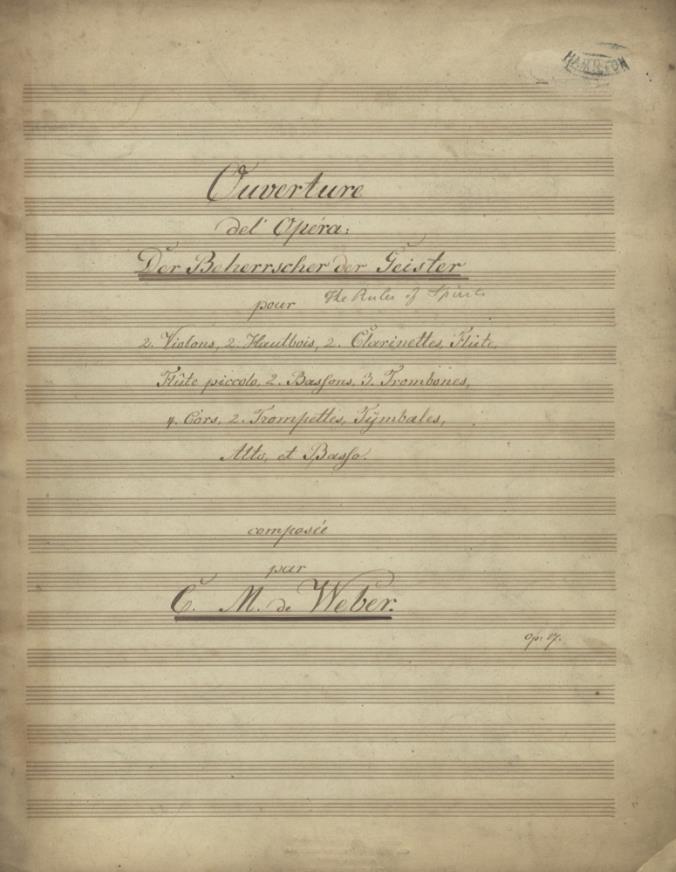 Ouverture
del' Opéra:
Der Beherrscher der Geister
pour The Ruler of Spirits
2. Violons, 2. Hautbois, 2. Clarinettes, Flûte,
Flûte piccolo, 2. Bassons, 3. Trombones,
4. Cors, 2. Trompettes, Tÿmbales,
Alto, et Basso.
composée
par
C. M. de Weber.
Op. 17.